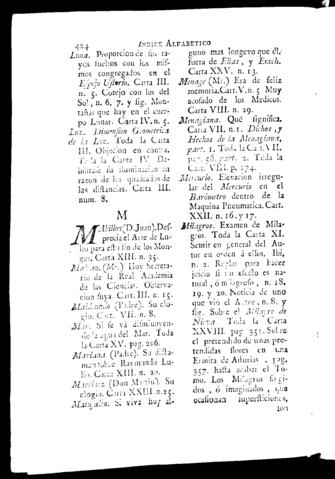 424 INDICE ALFABETICO
Luna. Proporcion de sus ra-
yos sueltos con los mis-
mos congregados en el
Espejo Ustorio. Carta III.
n. 5. Cotejo con los del
Sol, n. 6, 7. y sig. Mon-
tañas que hay en el cuer-
po Lunar. Carta IV. n. 5.
Luz. Dimension Geometrica
de la Luz. Toda la Carta
III. Objecion en contra.
Toda la Carta IV. De-
bilitase su iluminacion en
razon de los quadrados de
las distancias. Carta III.
num. 8.
M
(D. Juan). Des-
precia el Arte de Lu-
lio para estudio de los Mon-
ges. Carta XIII. n. 35.
(Mr.) Hoy Secreta-
rio de la Real Academia
de las Ciencias. Observa-
cion suya. Cart. III. n. 15.
(Padre). Su elo-
gio. Cart. VII. n. 8.
Mar. Si se vá disminuyen-
do la agua del Mar. Toda
la Carta XV. pag. 206.
Mariana (Padre). Su dicta-
men sobre Raymundo Lu-
lio. Carta XIII. n. 20.
(Don Martin). Su
elogio. Carta XXIII. n. 25.
Matusalén. Si vivió hoy al-
guno mas longevo que él,
fuera de Elias, y Enoch.
Carta XXV. n. 13.
Menage (Mr.) Era de feliz
memoria. Cart. V. n. 5 Muy
acosado de los Medicos.
Carta VIII. n. 29.
Menagiana. Qué significa.
Carta VII. n. 1. Dichos, y
Hechos de la Menagiana,
part. 1. Toda la Cart. VII.
pag. 56. part. 2. Toda la
Cart. VIII. p. 174.
Mercurio. Elevacion irregu-
lar del Mercurio en el
Barómetro dentro de la
Maquina Pneumatica. Cart.
XXII. n. 16. y 17.
Milagros. Examen de Mila-
gros. Toda la Carta XI.
Sentir en general del Au-
tor en orden á ellos. Ibi,
n. 2. Reglas para hacer
juicio si un efecto es na-
tural, ó milagroso, n. 18.
19. y 20. Noticia de uno
que vió el Autor, n. 8. y
sig. Sobre el Milagro de
Nieva. Toda la Carta
XXVIII. pag. 351. Sobre
el pretendido de unas pre-
tendidas flores en una
Ermita de Asturias, pag.
357. hasta acabar el To-
mo. Los Milagros fingi-
dos, ó imaginados, que
ocasionan supersticiones,
son